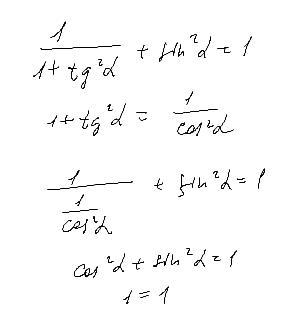 1/(1+tg²α) + sin²α = 1
1+tg²α = 1/cos²α
1/(1/cos²α) + sin²α = 1
cos²α + sin²α = 1
1 = 1